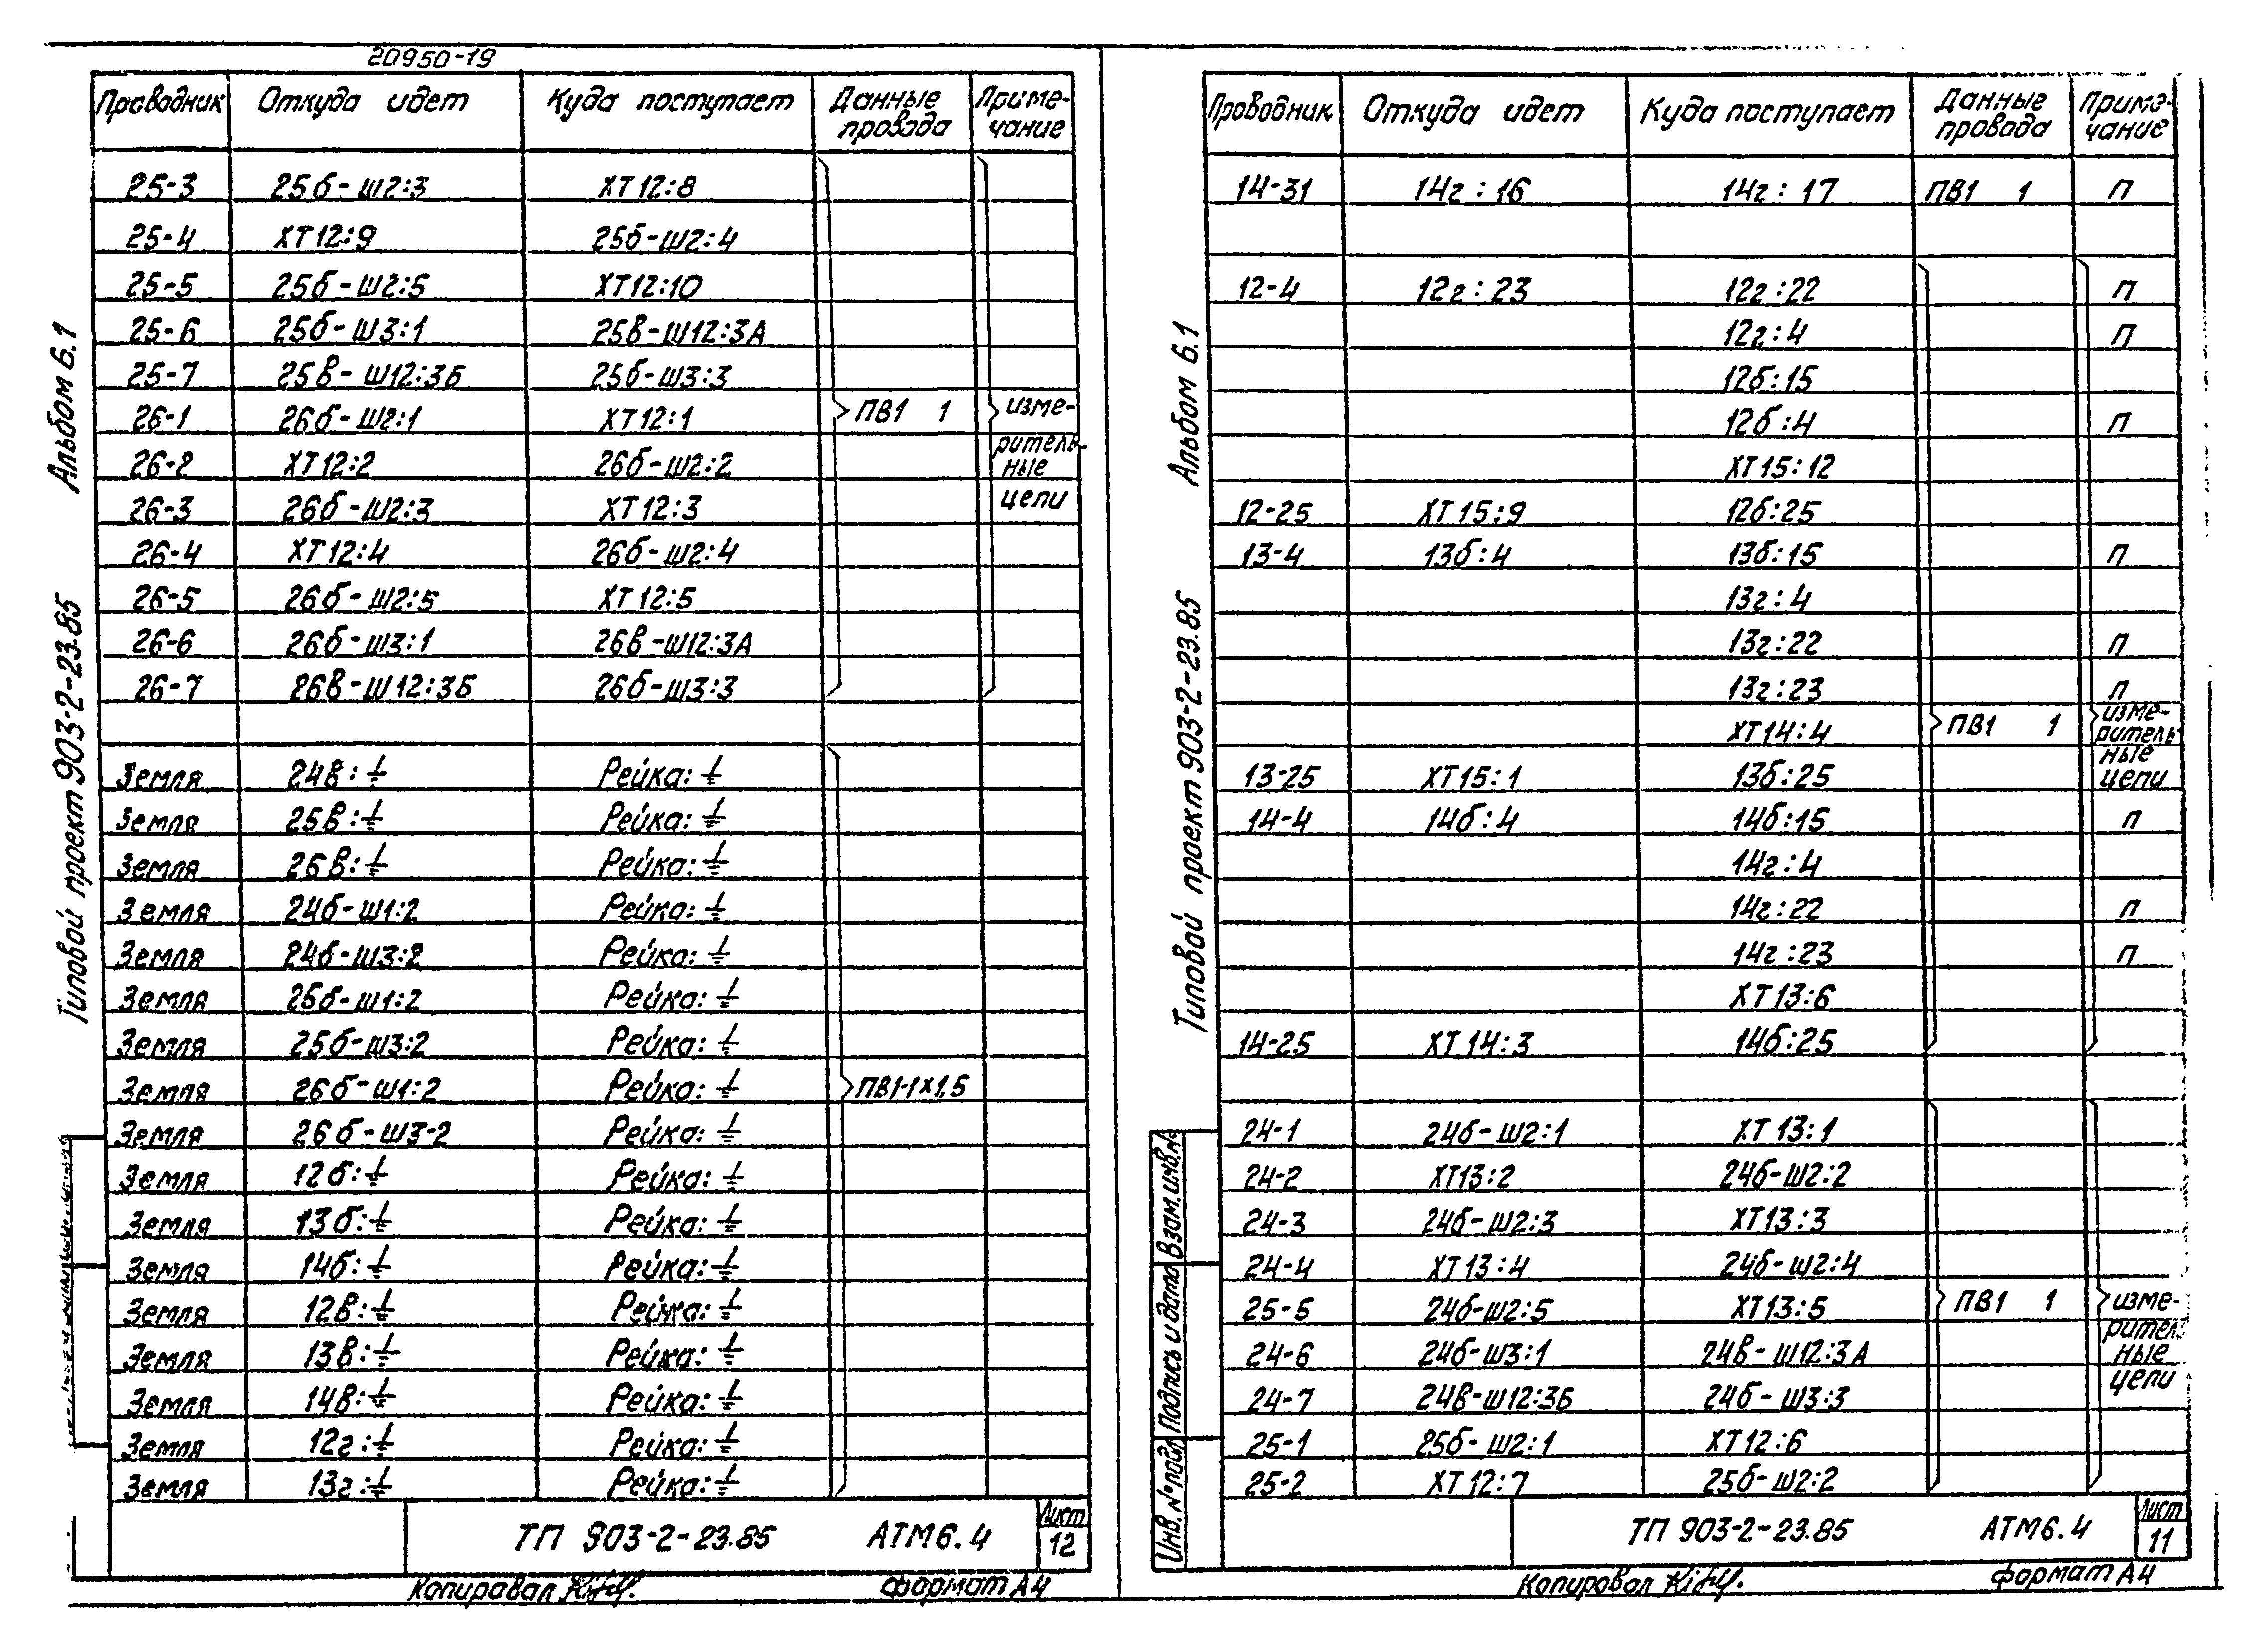 20950-19
Проводник Откуда идет Куда поступает Данные провода Приме-чание
25-3 25б-Ш2:3 ХТ12:8
25-4 ХТ12:9 25б-Ш2:4
25-5 25б-Ш2:5 ХТ12:10
25-6 25б-Ш3:1 25В-Ш12:3А
25-7 25В-Ш12:3Б 25б-Ш3:3
26-1 26б-Ш2:1 ХТ12:1 ПВ1 1 изме-
26-2 ХТ12:2 26б-Ш2:2 ритель-ные
26-3 26б-Ш2:3 ХТ12:3 цепи
26-4 ХТ12:4 26б-Ш2:4
26-5 26б-Ш2:5 ХТ12:5
26-6 26б-Ш3:1 26В-Ш12:3А
26-7 26В-Ш12:3Б 26б-Ш3:3
Земля 24В:⏚ Рейка:⏚
Земля 25В:⏚ Рейка:⏚
Земля 26В:⏚ Рейка:⏚
Земля 24б-Ш1:2 Рейка:⏚
Земля 24б-Ш3:2 Рейка:⏚
Земля 25б-Ш1:2 Рейка:⏚
Земля 25б-Ш3:2 Рейка:⏚
Земля 26б-Ш1:2 Рейка:⏚ ПВ1-1х1,5
Земля 26б-Ш3-2 Рейка:⏚
Земля 12б:⏚ Рейка:⏚
Земля 13б:⏚ Рейка:⏚
Земля 14б:⏚ Рейка:⏚
Земля 12В:⏚ Рейка:⏚
Земля 13В:⏚ Рейка:⏚
Земля 14В:⏚ Рейка:⏚
Земля 12г:⏚ Рейка:⏚
Земля 13г:⏚ Рейка:⏚
ТП 903-2-23.85 АТМ6.4 Лист 12
Копировал
формат А4
Альбом 6.1
Типовой проект 903-2-23.85
Проводник Откуда идет Куда поступает Данные провода Приме-чание
14-31 14г:16 14г:17 ПВ1 1 П
12-4 12г:23 12г:22 П
12г:4 П
12б:15
12б:4 П
ХТ15:12
12-25 ХТ15:9 12б:25
13-4 13б:4 13б:15 П
13г:4
13г:22 П
13г:23 П
ХТ14:4 ПВ1 1 изме-ритель-ные
13-25 ХТ15:1 13б:25 цепи
14-4 14б:4 14б:15 П
14г:4
14г:22 П
14г:23 П
ХТ13:6
14-25 ХТ14:3 14б:25
24-1 24б-Ш2:1 ХТ13:1
24-2 ХТ13:2 24б-Ш2:2
24-3 24б-Ш2:3 ХТ13:3
24-4 ХТ13:4 24б-Ш2:4
25-5 24б-Ш2:5 ХТ13:5 ПВ1 1 изме-
24-6 24б-Ш3:1 24В-Ш12:3А ритель-ные
24-7 24В-Ш12:3Б 24б-Ш3:3 цепи
25-1 25б-Ш2:1 ХТ12:6
25-2 ХТ12:7 25б-Ш2:2
ТП 903-2-23.85 АТМ6.4 Лист 11
Копировал
формат А4
Альбом 6.1
Типовой проект 903-2-23.85
Взам.инв.№
Подпись и дата
Инв.№ подл